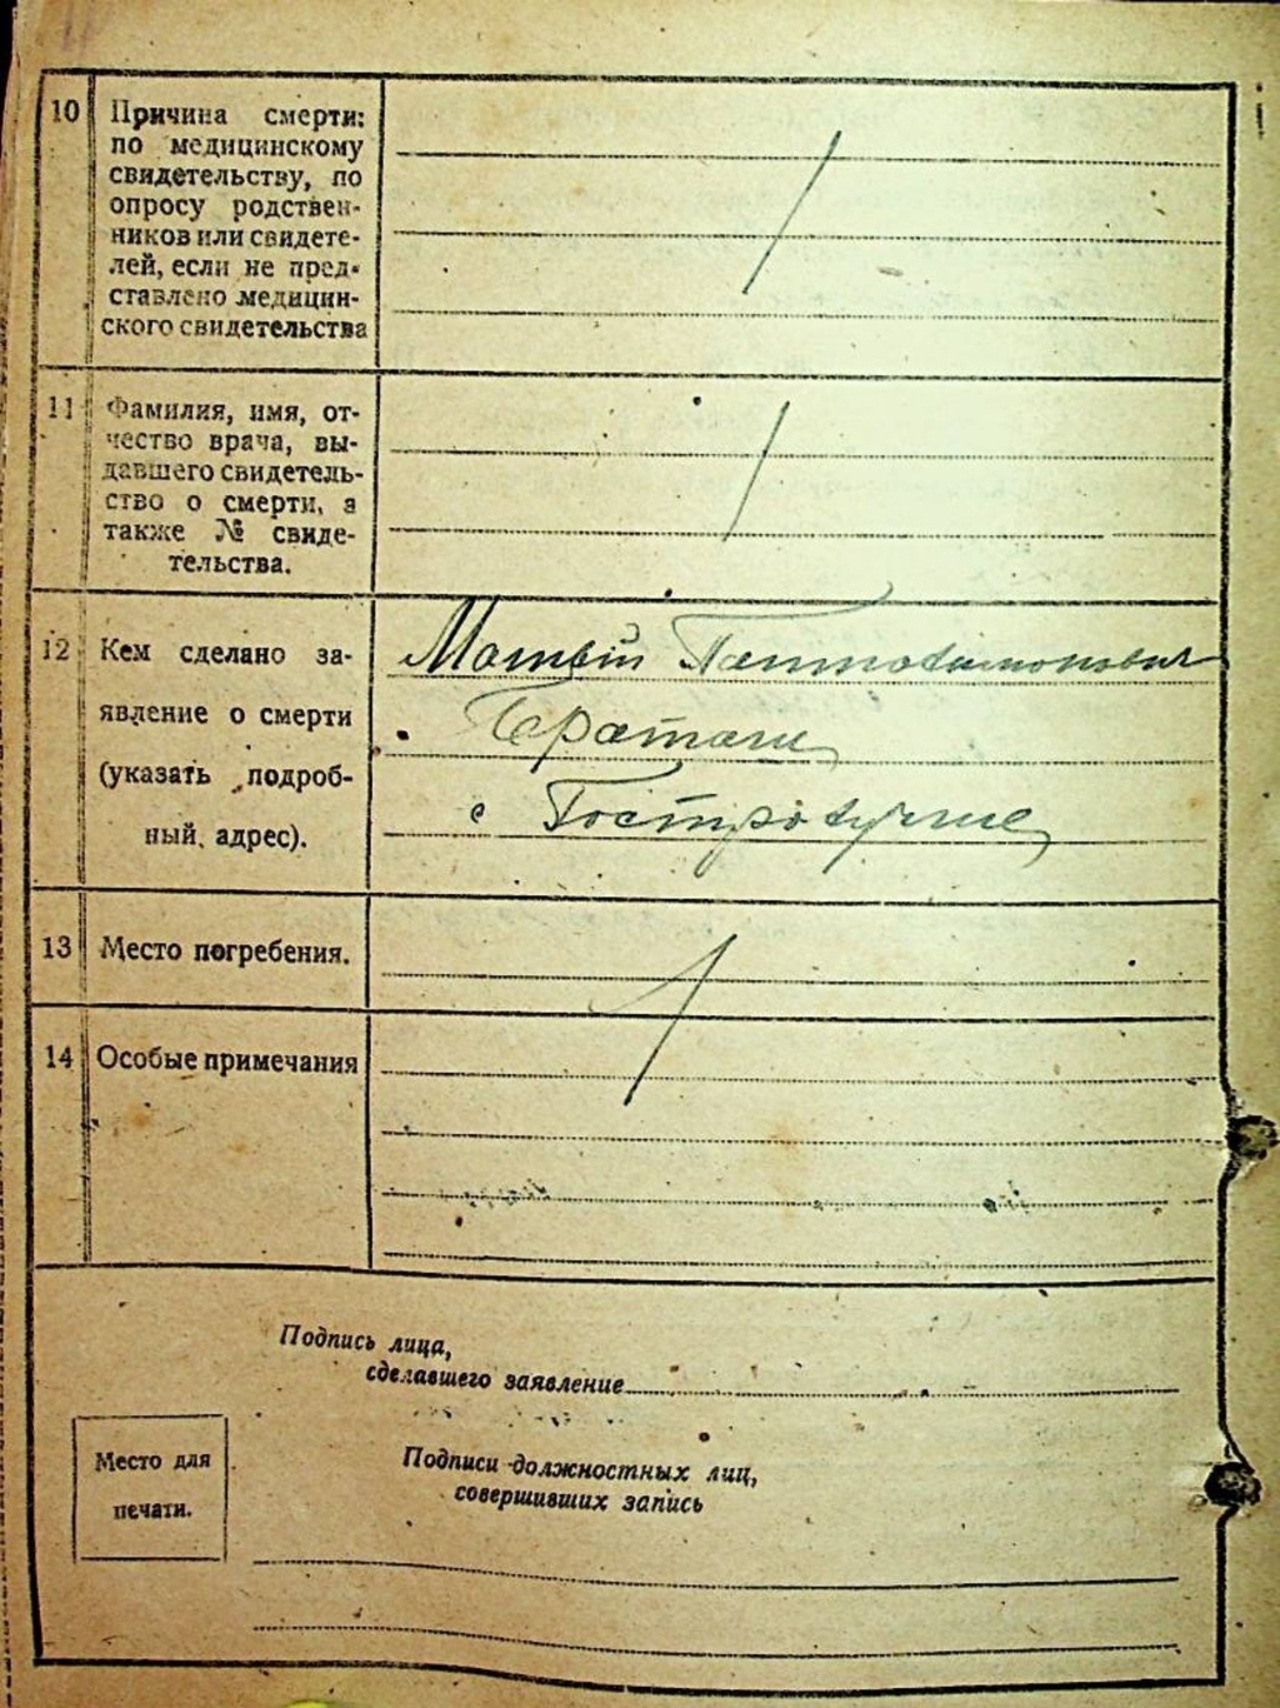 10 Причина смерти:
по медицинскому
свидетельству, по
опросу родствен-
ников или свидете-
лей, если не пред-
ставлено медицин-
ского свидетельства
11 Фамилия, имя, от-
чество врача, вы-
давшего свидетель-
ство о смерти, а
также № свиде-
тельства.
12 Кем сделано за-
явление о смерти
(указать подроб-
ный адрес).
Матвій
с
13 Место погребения.
14 Особые примечания
Подпись лица,
сделавшего заявление
Место для
печати.
Подписи должностных лиц,
совершивших запись